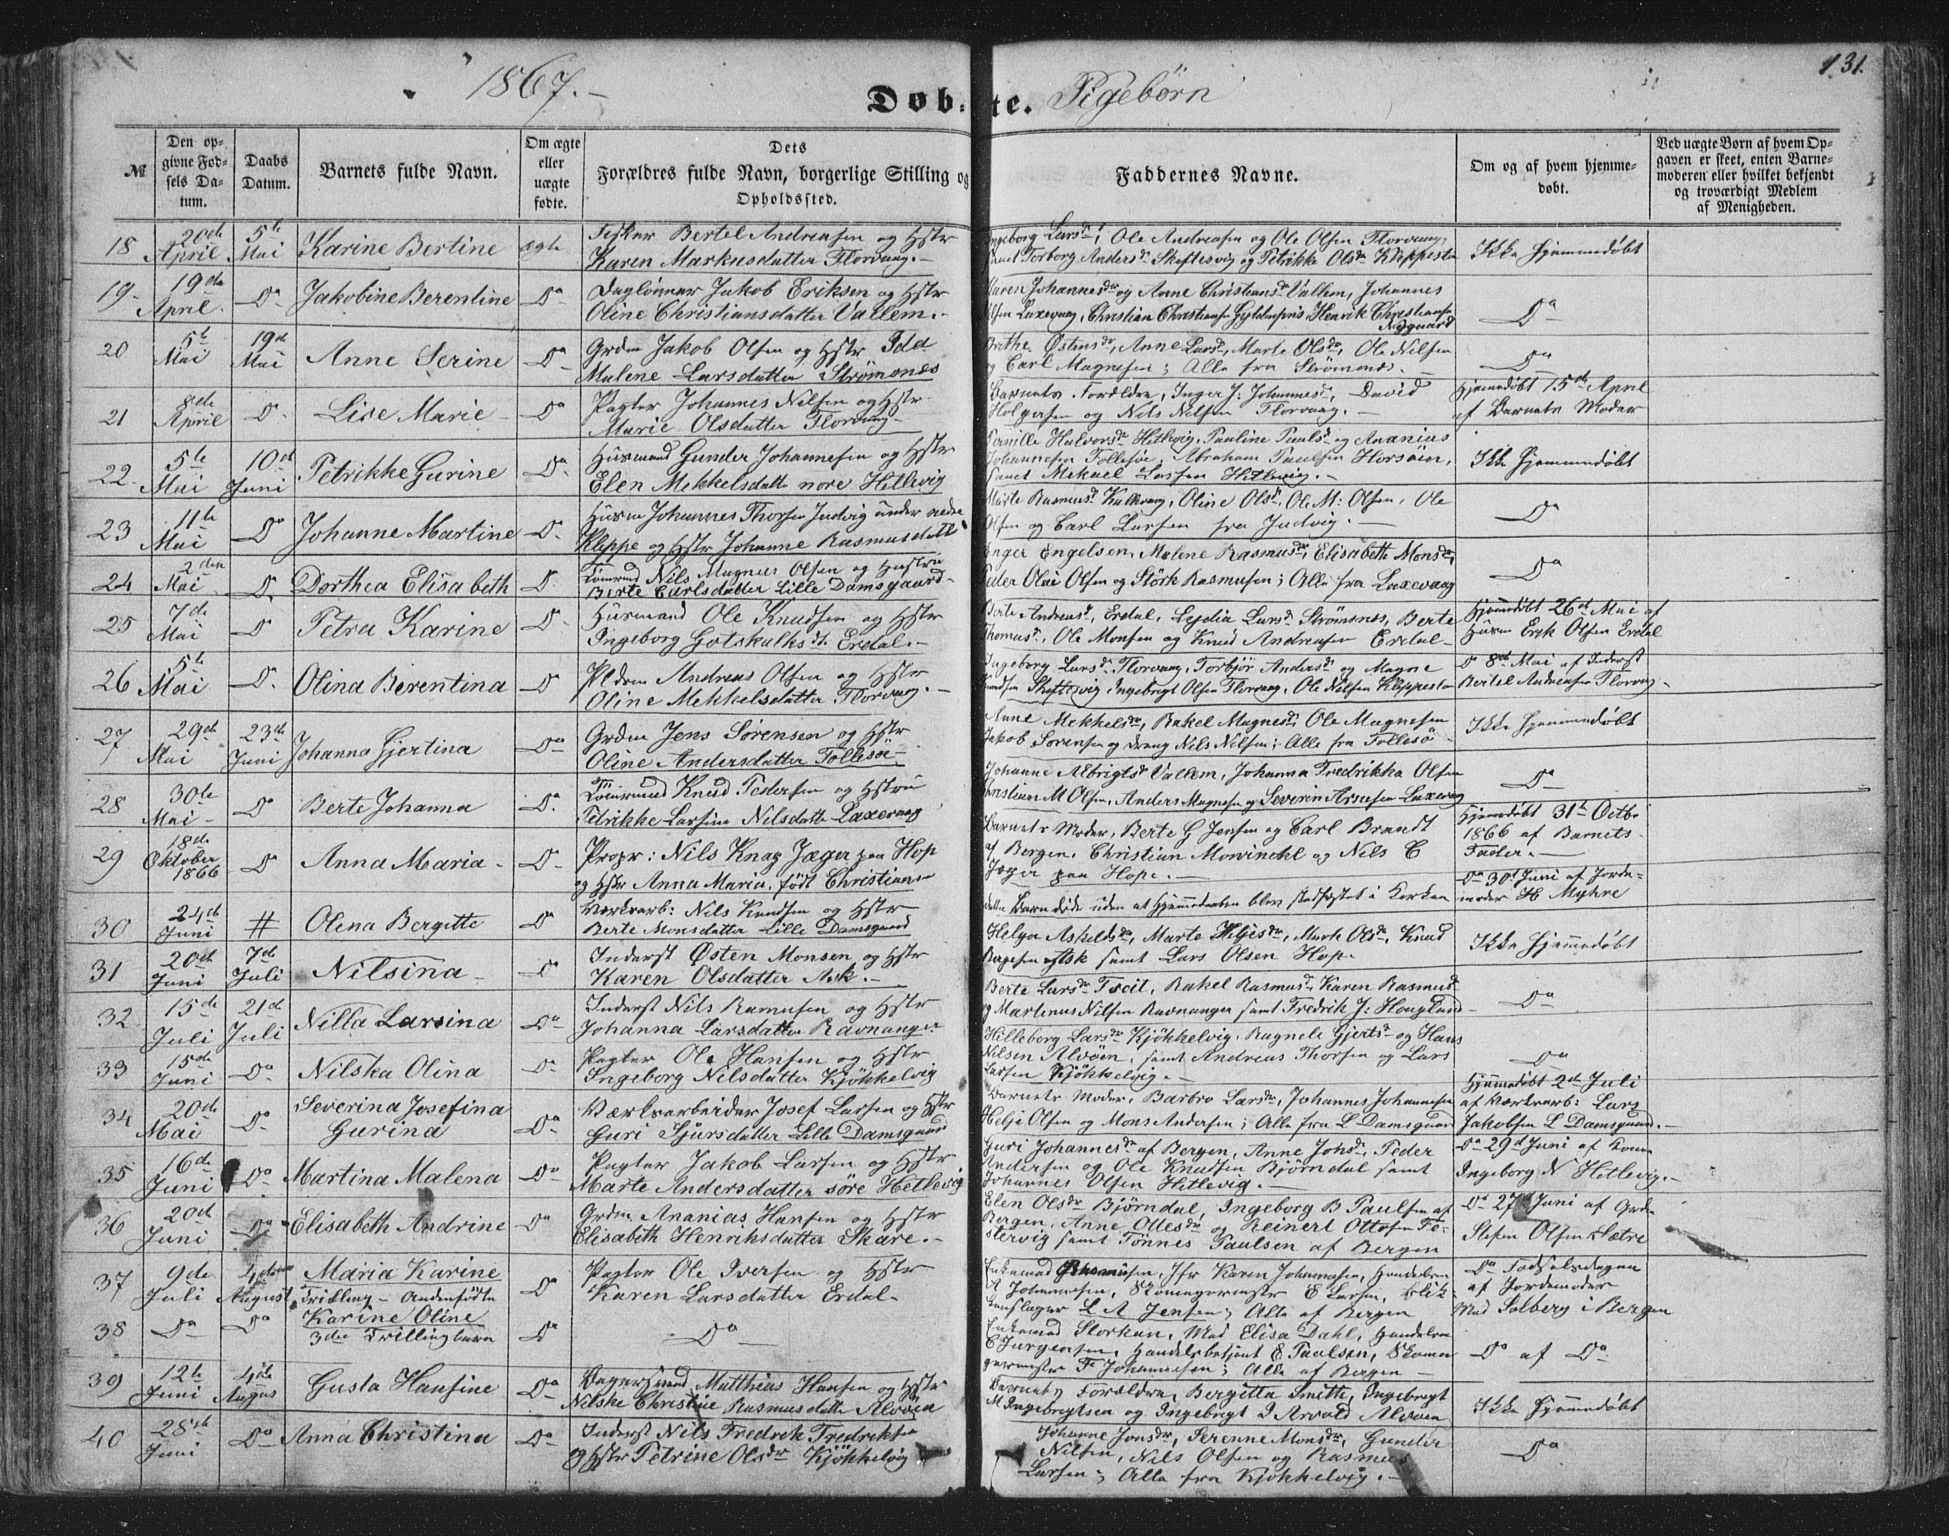 1867.
Døb-te. Pigebørn
131.
№
Den opgivne Fødsels Datum.
Daabs Datum.
Barnets fulde Navn.
Om ægte eller uægte fødte.
Dets Forældres fulde Navn, borgerlige Stilling og Opholdssted.
Faddernes Navne.
Om og af hvem hjemmedøbt.
Ved uægte Børn af hvem Opgaven er skeet, enten Barnemoderen eller hvilket bekjendt og troværdigt Medlem af Menigheden.
18 20de April 5te Mai Karine Bertine ægte Fisker Bertel Andreasen og Hstr
Karen Markusdatter Florvaag.
Ingeborg Larsdr, Ole Andreasen og Ole Olsen Florvaag,
samt Torborg Andersdr Skeftesvig og Petrikke Olsdr Kleppestø
Ikke Hjemmedøbt
19 19de April Do Jakobine Berentine Do Daglønner Jakob Eriksen og Hstr
Oline Christiansdatter Vallem.
Maren Johannesdr og Anne Christiansdr Vallem, Johannes
Olsen Laxevaag, Christian Christiansen Gyldenpris, Henrik Christiansen
Nygaard
Do
20 5te Mai 19de Mai Anne Serine Do Grdm Jakob Olsen og Hstr Ida
Malene Larsdatter Strømsnes
Brithe Østensdr, Anne Larsdr, Marte Olsdr, Ole Nilsen
og Carl Magnesen; Alle fra Strømsnes.
Do
21 8de April Do Lise Marie Do Pagter Johannes Nilsen og Hstr
Marie Olsdatter Florvaag
Barnets Forældre, Inger J. Johannesdr, David
Holgersen og Nils Nilsen Florvaag.
Hjemmedøbt 15de April
af Barnets Moder
22 5te Mai 10de Juni Petrikke Gurine Do Husmand Gunder Johannesen og Hstr
Elen Mekkelsdatter nore Hetlevig
Pernille Halvorsdr Hetlevig, Pauline Paulsdr og Ananias
Johannesen Follesøe, Abraham Paulsen Horsøen,
samt Mekael Larsen Hetlevig.
Ikke Hjemmedøbt
23 11te Mai Do Johanne Martine Do Husm Johannes Thorsen Judvig under nedre
Kleppe og Hstr Johanne Rasmusdatter
Marte Rasmusdr Kalkvaag, Oline Olsdr, Ole M. Olsen, Ole
Olsen og Carl Larsen fra Judvig.
Do
24 2den Mai Do Dorthea Elisabeth Do Tømmermd Nils Magnus Olsen og Hustru
Berte Carlsdatter Lille Damsgaard
Inger Engelsen, Malene Rasmusdr, Elisabeth Monsdr,
Peder Olai Olsen og Størk Rasmusen; Alle fra Laxevaag
Do
25 7de Mai Do Petra Karine Do Husmand Ole Knudsen og Hstr
Ingeborg Gotskalksdr Erdal.
Berte Andreasdr Erdal, Lydia Larsdr Strømsnes, Berte
Thomasdr, Ole Monsen og Knud Andreasen Erdal
Hjemmdøbt 26de Mai af
Husm Eryk Olsen Erdal
26 5te Mai Do Olina Berentina Do Pldsm Andreas Olsen og Hstr
Oline Mekkelsdatter Florvaag.
Ingeborg Larsdr Florvaag, Torbjør Andersdr og Magne
Knudsen Skeftesvig, Ingebrigt Olsen Florvaag, Ole Nilsen Kleppestø
Do 8de Mai af Inderst
Bertel Andreasen Florvag
27 29de Mai 23de Juni Johanna Gjertina Do Grdm Jens Sørensen og Hstr
Oline Andersdatter Follesøe
Anne Mekkelsdr, Rakel Magnesdr, Ole Magnesen
Jakob Sørensen og dreng Nils Nilsen; Alle fra Follesø
Ikke Hjemmedøbt
28 30te Mai Do Berte Johanna Do Tømrmd Knud Pedersen og Hstru
Petrikke Larsine Nilsdatter Laxevaag
Johanne Albrigtsdr Vallem, Johanna Fredrikka Olsen
Christian M Olsen, Anders Magnesen og Severin Arnesen Laxevaag
Do
29 18de Oktober 1866 Do Anna Maria Do Propr: Nils Knag Jæger paa Hop
og Hstr Anna Maria, født Christiansen
Barnets Moder, Berte G Jensen og Carl Brandt
af Bergen, Christian Mowinckl og Nils C
Jæger paa Hope.
Hjemmdøbt 31te Octbr
1866 af Barnets
Fader.
30 24de Juni # Olena Bergitte Do Værksarb: Nils Knudsen og Hstr
Berte Monsdatter Lille Damsgaard
dette Barn døde uden at Hjemmedaaben blev stadfæstet i Kirken
Do 30te Juni af Jordemoder H Myhre
31 20de Juni 7de Juli Nilsina Do Inderst Østen Monsen og Hstr
Karen Olsdatter Ask.
Helga Askeldsdr, Marte Heljesdr, Mark Olsdr, Knud
Børgesen Ask samt Lars Olsen Hop
Ikke Hjemmedøbt
32 15de Juli 21de Juli Nilla Larsina Do Inderst Nils Ramusen og Hstr
Johanna Larsdatter Ravnanger
Berte Larsdr Tveit, Rakel Rasmusdr, Karen Rasmusdr
og Martinus Nilsen Ravnanger samt Fredrik J. Hougland
Do
33 15de Juni Do Nilska Olina Do Pagter Ole Hansen og Hstr
Ingeborg Nilsdatter Kjøkkelvig
Hilleborg Larsdr Kjøkkelvig, Ragnele Gjertsdr og Hans
Nilsen Alvøen, samt Andreas Thorsen og Lars
Larsen Kjøkkelvig.
Do
34 20de Mai Do Severina Josefina
Gurina Do Værksarbeider Josef Larsen og Hstr
Guri Sjursdatter Lille Damsgaard
Barnets Moder, Barbro Larsdr, Johannes Johannesen
Helje Olsen og Mons Andersen; Alle fra L Damsgaard
Hjemmdøbt 2de Juli
af Værksarb: Lars
Jakobsen L Damsgaard.
35 16de Juni Do Martina Malena Do Pagter Jakob Larsen og Hstr
Marte Andersdatter søre Hetlevig
Guri Johannesdr af Bergen, Anne Johsdr, Peder
Andersen og Ole Knudsen Bjørndal samt
Johannes Olsen Hetlevig.
Do 29de Juni af Kone
Ingeborg N Hetlevig.
36 20de Juni Do Elisabeth Andrine Do Grdm Ananias Hansen og Hstr
Elisabeth Henriksdatter Skare.
Elen Olsdr Bjørndal, Ingeborg B Paulsen af
Bergen, Anne Ollesdr og Reinert Ottosen Testervig samt Tønnes Paulsen af Bergen
Do 27de Juni af Grdm
Stefen Olsen Sætre
37 9de Juli 4de August Maria Karine
Trilling - Andenfødte Do Pagter Ole Iversen og Hstr
Karen Larsdatter Erdal
Enkemad Rasmusen, Jfr Karen Johannesen, Handelsm
A Johannesen, Skomagermster E Larsen, Blikkenslager L A Jensen; Alle af Bergen
Do Fødselsdagen
af Jordemoder
Mad Solberg i Bergen
38 Do Do Karine Oline
3die Trillingbarn Do Do
Enkemad Storkan, Mad Elisa Dahl, Handelsm
C Jurgensen, Handelsbetjent E Paulsen, Skomagermester F Johannesen; Alle af Bergen
Do af Do
39 12te Juni 4de Augus Gusta Hansine Do Bagersvend Matthias Hansen og Hstr
Nilske Christine Rasmusdatter Alvøen
Barnets Forældre, Bergitta Smitt, Ingebregt
M Ingebregtsen og Ingebregt I Arvold Alvøen
Ikke Hjemmedøbt
40 28de Juni Do Anna Christina Do Inderst Nils Fredrik Fredriksen
og Hstr Petrine Olsdr Kjøkkelvig
Johanne Jonsdr, Serenne Monsdr, Gunder
Nilsen, Nils Olsen og Rasmus
Larsen; Alle fra Kjøkkelvig.
Do